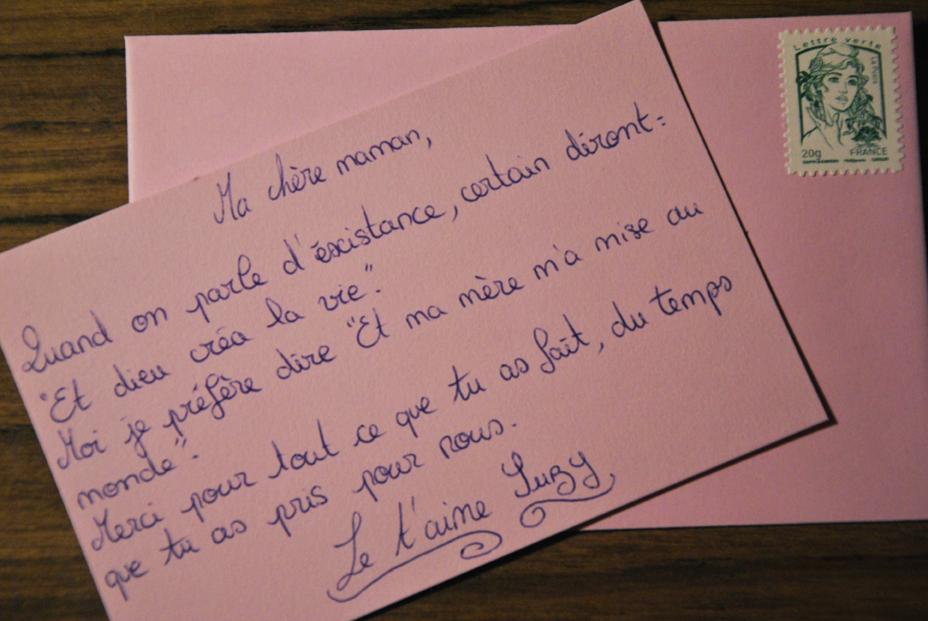 Ma chère maman,
Quand on parle d'éxistance, certain diront :
"Et dieu créa la vie".
Moi je préfère dire "Et ma mère m'a mise au
monde".
Merci pour tout ce que tu as fait, du temps
que tu as pris pour nous.
Je t'aime Suzy
Lettre verte
La Poste
20g FRANCE